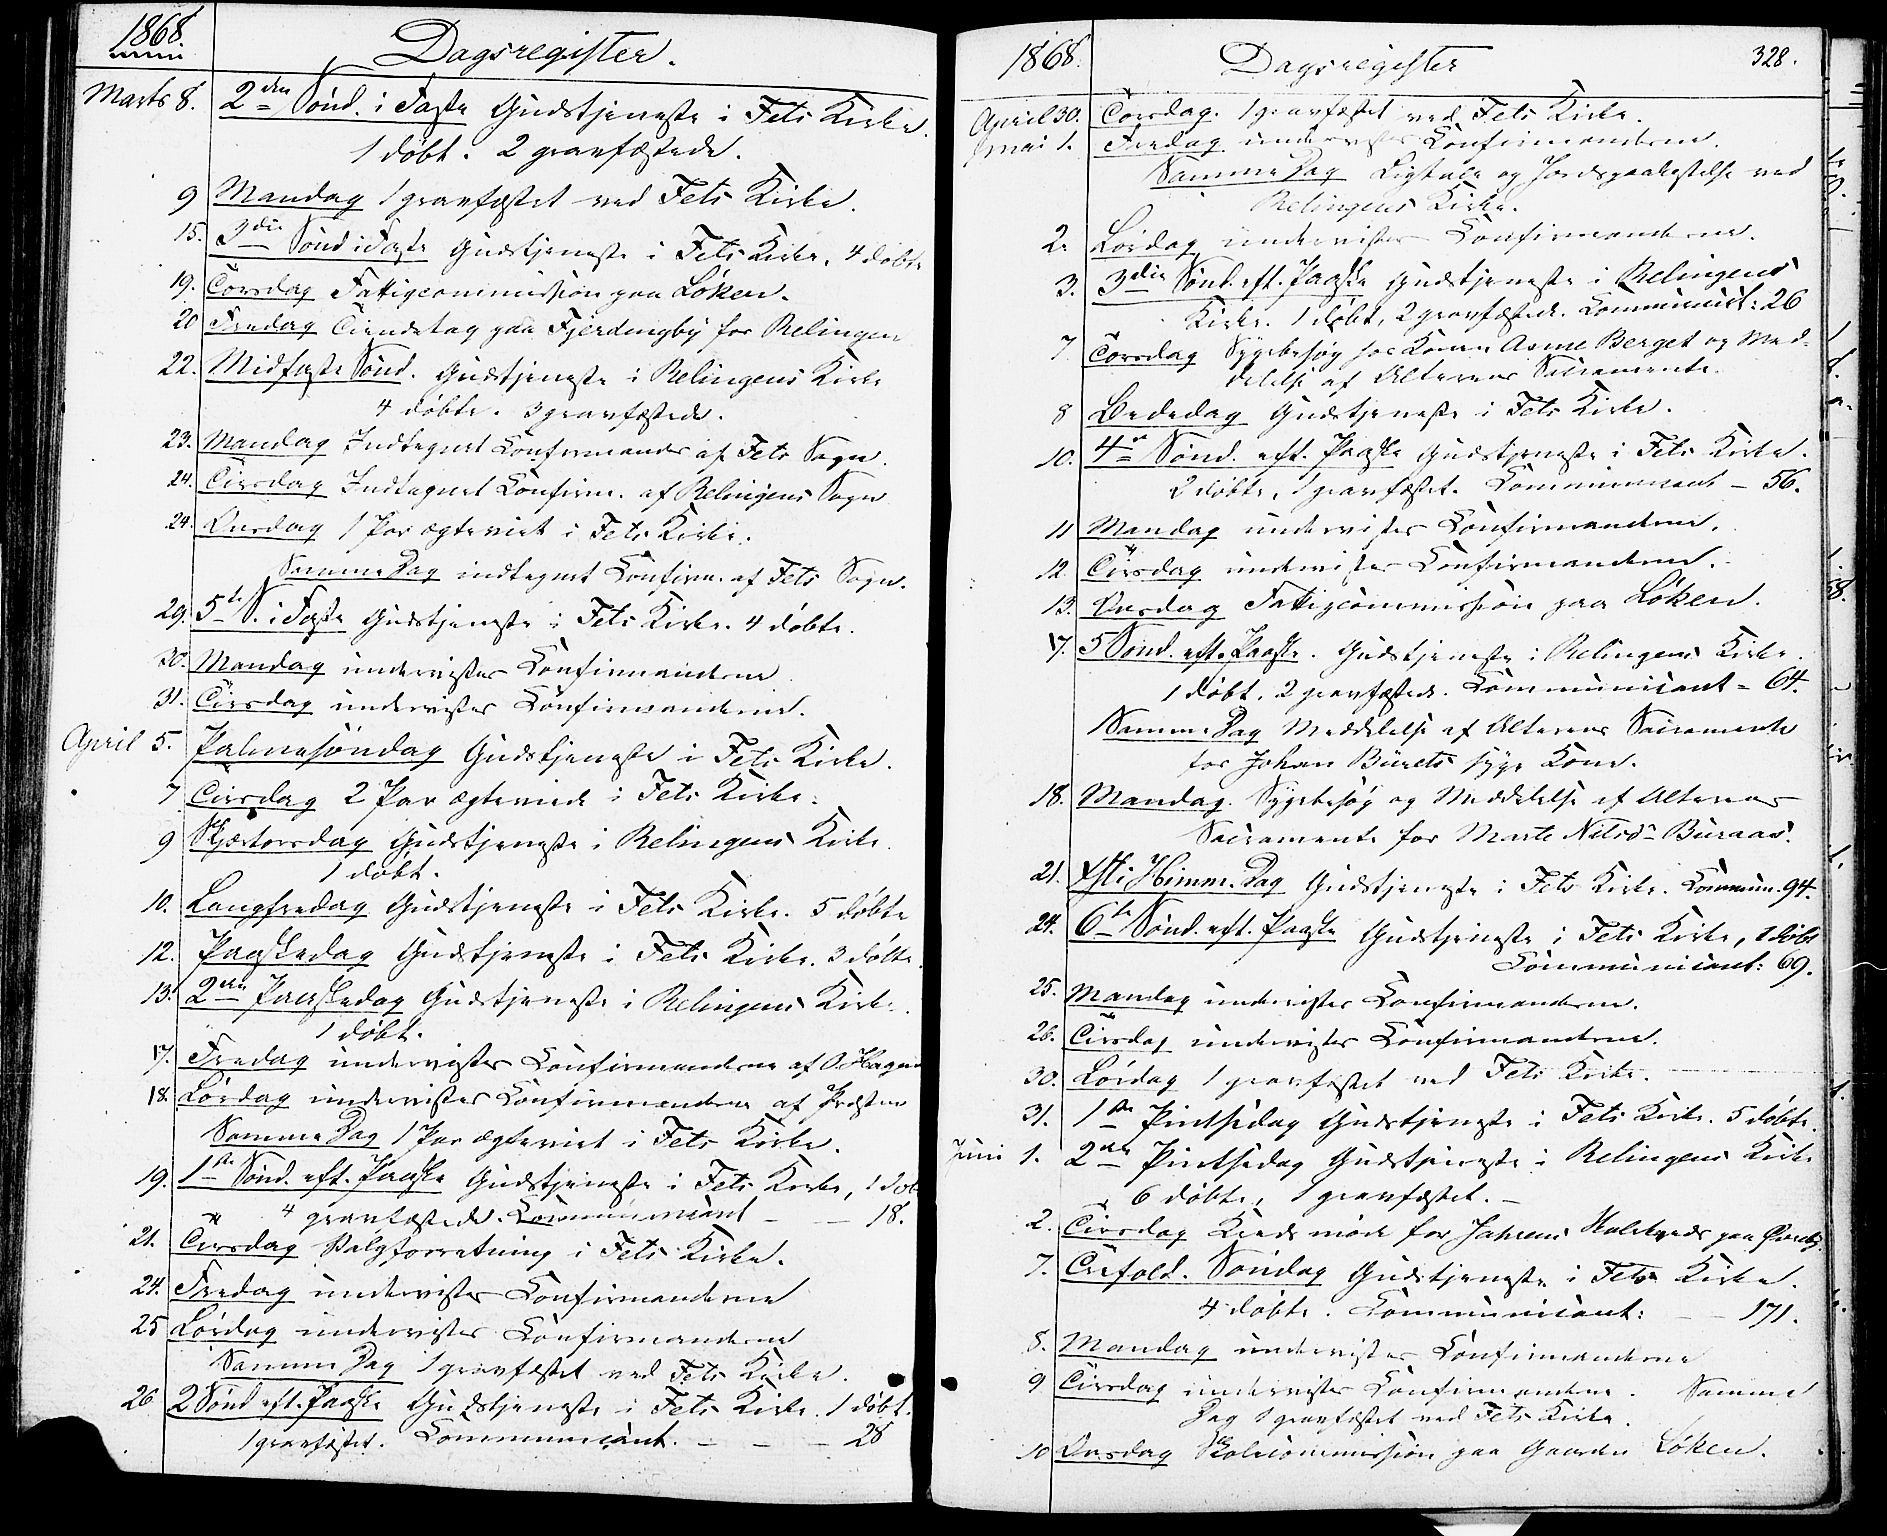 1868.
Dagsregister.
Marts 8. 2den Sønd. i Faste Gudstjeneste i Fets Kirke.
1 døbt. 2 gravfæstede.
9 Mandag 1 gravfæstet ved Fets Kirke.
15. 3die Sønd i Faste Gudstjeneste i Fets Kirke, 4 døbte
19. Torsdag Fattigcommission paa Løken.
20 Fredag Tiendetag paa Fjerdingby for Relingen
22. Midfaste Sønd. Gudstjeneste i Relingens Kirke
4 døbte. 3 gravfæstede.
23. Mandag Indtegnet Confirmander af Fets Sogn.
24. Tirsdag Indtegnet Confirm. af Relingens Sogn
24. Onsdag 1 Par ægteviet i Fets Kirke.
Samme Dag indtegnet Confirm. af Fets Sogn.
29. 5te S. i Faste Gudstjeneste i Fets Kirke. 4 døbte.
30. Mandag undervistes Confirmanderne
31. Tirsdag undervistes Confirmanderne.
April 5. Palmesøndag Gudstjeneste i Fets Kirke.
7 Tirsdag 2 Par ægteviede i Fets Kirke.
9 Skjærtorsdag Gudstjeneste i Relingens Kirke.
1 døbt.
10. Langfredag Gudstjeneste i Fets Kirke. 5 døbte
12. Paaskedag Gudstjeneste i Fets Kirke. 3 døbte.
13. 2den Paaskedag Gudstjeneste i Relingens Kirke.
1 døbt.
17. Fredag undervistes Confirmanderne af O. Hagen
18. Lørdag undervistes Confirmanderne af Præsten
Samme Dag 1 Par ægteviet i Fets Kirke.
19. 1ste Sønd. eft. Paaske Gudstjeneste i Fets Kirke, 1 døb
4 gravfæstede. Communicant — — 18.
21. Tirsdag Valgforretning i Fets Kirke.
24. Fredag undervistes Confirmanderne
25 Lørdag undervistes Confirmanderne
Samme Dag 1 gravfæstet ved Fets Kirke.
26 2 Sønd eft. Paaske Gudstjeneste i Fets Kirke. 1 døbt.
1 gravfæstet. Communicant. — — — 28
1868.
Dagsregister
328.
April 30. Torsdag. 1 gravfæstet ved Fets Kirke.
Mai 1. Fredag undervistes Confirmanderne.
Samme Dag Ligtale og Jordspaakastelse ved
Relingens Kirke.
2. Lørdag undervistes Confirmanderne.
3. 3die Sønd. eft. Paaske Gudstjeneste i Relingens
Kirke. 1 døbt, 2 gravfæstede. Communicant: 26
7 Torsdag Sygebesøg hos Konen Anne Berget og Med-
delelse af Alterens Sacramente.
8 Bededag Gudstjeneste i Fets Kirke.
10. 4e Sønd. eft. Paaske Gudstjeneste i Fets Kirke.
2 døbte, 1 gravfæstet. Communicant — 56.
11 Mandag undervistes Confirmanderne.
12. Tirsdag undervistes Confirmanderne.
13. Onsdag Fattigcommission paa Løken.
17. 5 Sønd. eft. Paaske. Gudstjeneste i Relingens Kirke.
1 døbt. 2 gravfæstede. Communicant = 64.
Samme Dag Meddelelse af Alterens Sacramente
for Johan Bürets syge Kone.
18. Mandag. Sygebesøg og Meddelelse af Alterens
Sacramente for Marte Nilsdr Buraas.
21. Chri Himm. Dag Gudstjeneste i Fets Kirke. Commun. 94.
24. 6te Sønd. eft. Paaske Gudstjeneste i Fets Kirke, 1 døbt
Communicant: 69.
25. Mandag undervistes Confirmanderne.
26. Tirsdag undervistes Confirmanderne.
30. Lørdag 1 gravfæstet ved Fets Kirke.
31. 1ste Pintsedag Gudstjeneste i Fets Kirke. 5 døbte.
Juni 1. 2den Pintsedag Gudstjeneste i Relingens Kirke
6 døbte, 1 gravfæstet. —
2. Tirsdag for paa
7. Trefold. Søndag Gudstjeneste i Fets Kirke.
4 døbte. Communicant: — — 171.
8. Mandag undervistes Confirmanderne
9 Tirsdag undervistes Confirmanderne. Samme
Dag 1 gravfæstet ved Fets Kirke.
10 Onsdag Skolecommission paa Gaarden Løken.